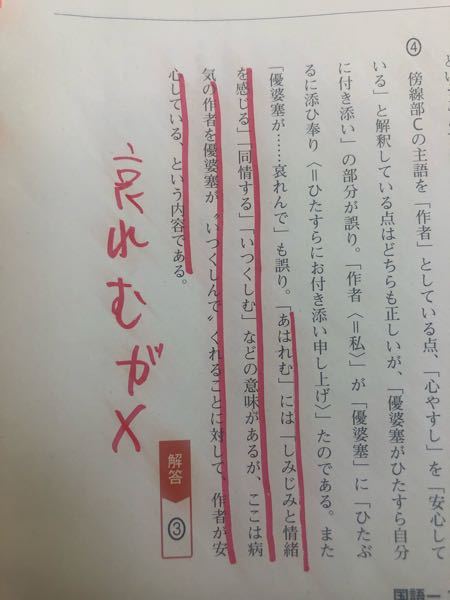 ④　傍線部Cの主語を「作者」としている点、「心やすし」を「安心して
いる」と解釈している点はどちらも正しいが、「優婆塞がひたすら自分
に付き添い」の部分が誤り。「作者〈＝私〉」が「優婆塞」に「ひたぶ
るに添ひ奉り〈＝ひたすらにお付き添い申し上げ〉」たのである。また
「優婆塞が……哀れんで」も誤り。「あはれむ」には「しみじみと情緒
を感じる」「同情する」「いつくしむ」などの意味があるが、ここは病
気の作者を優婆塞が〝いつくしんで〟くれることに対して、作者が安
心している、という内容である。
哀れむが×
解答
③
国語一